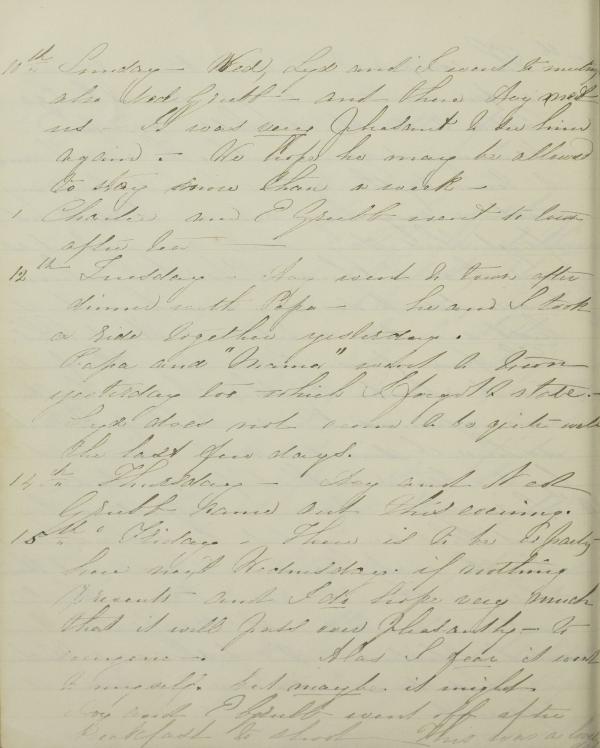 10th Sunday - Wed, Lyd and I went to meeting
also Ned Grubb - and there Jay met
us - It was very pleasant to see him
again - We hope he may be allowed
to stay more than a week -
Charlie and E Grubb went to town
after tea -
12th Tuesday - Jay went to town after
dinner with Papa - he and I took
a ride together yesterday.
Papa and "Mama" went to town
yesterday too which I forgot to state -
Lyd does not seem to be quite well
the last few days.
14th Thursday - Jay and Ned
Grubb came out this evening.
15th Friday - There is to be a party
here next Wednesday if nothing
prevents and I do hope very much
that it will pass over pleasantly - to
everyone - Alas I fear it wont
to myself. but maybe it might.
Jay and E Grubb went off after
breakfast to shoot This was a